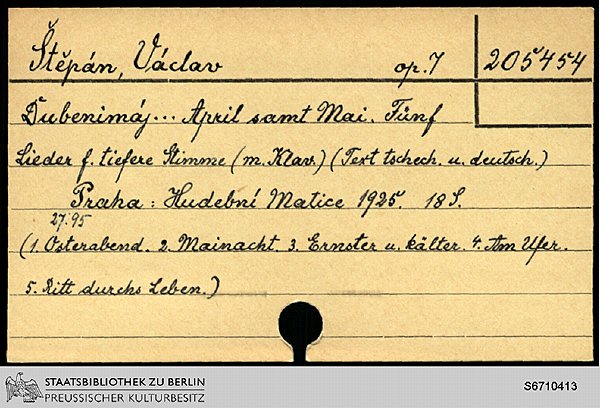 Štěpán, Václav op. 7 205454
Dubenimáj... April samt Mai. Fünf
Lieder f. tiefere Stimme (m. Klav.) (Text tschech. u. deutsch.)
Praha: Hudební Matice 1925. 18 S.
27.95
(1. Osterabend. 2. Mainacht. 3. Ernster u. kälter. 4. Am Ufer.
5. Ritt durchs Leben.)
STAATSBIBLIOTHEK ZU BERLIN
PREUSSISCHER KULTURBESITZ
S6710413